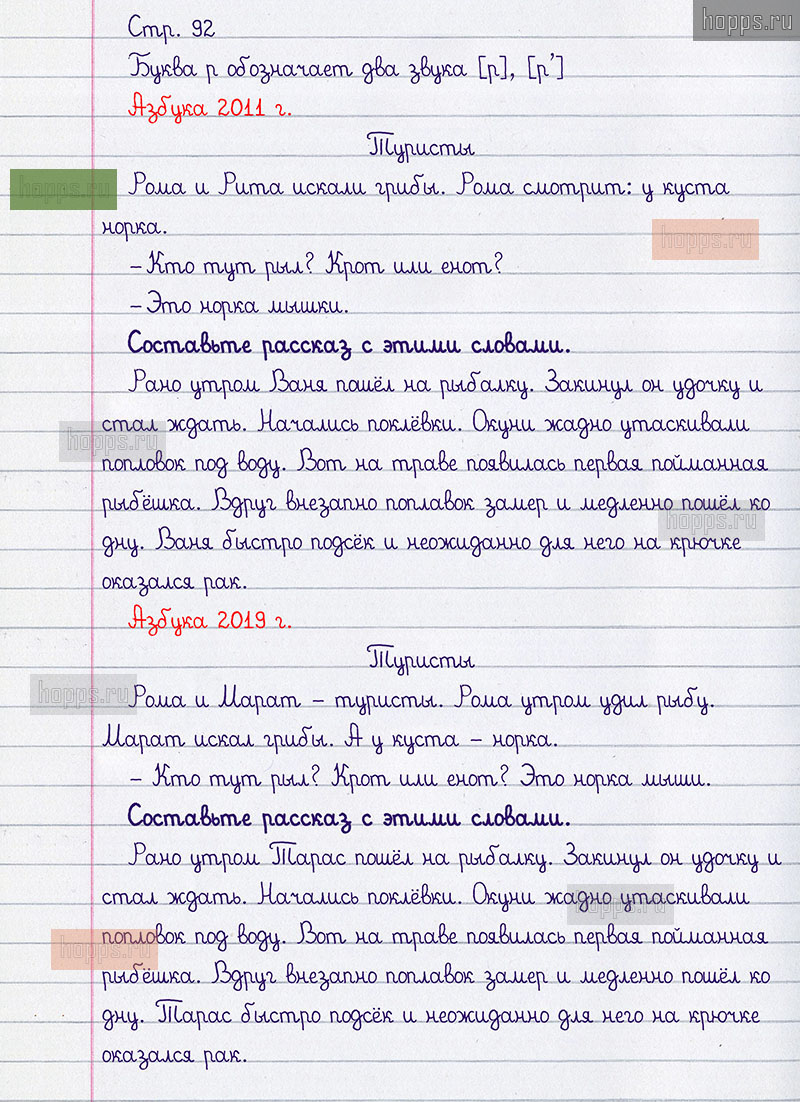 hopps.ru
Стр. 92
Буква р обозначает два звука [р], [р']
Азбука 2011 г.
Туристы
hopps.ru
Рома и Рита искали грибы. Рома смотрит: у куста
норка.
hopps.ru
– Кто тут рыл? Крот или енот?
– Это норка мышки.
Составьте рассказ с этими словами.
Рано утром Ваня пошёл на рыбалку. Закинул он удочку и
стал ждать. Начались поклёвки. Окуни жадно утаскивали
hopps.ru
попловок под воду. Вот на траве появилась первая пойманная
рыбёшка. Вдруг внезапно поплавок замер и медленно пошёл ко
hopps.ru
дну. Ваня быстро подсёк и неожиданно для него на крючке
оказался рак.
Азбука 2019 г.
Туристы
hopps.ru
Рома и Марат – туристы. Рома утром удил рыбу.
Марат искал грибы. А у куста – норка.
– Кто тут рыл? Крот или енот? Это норка мыши.
Составьте рассказ с этими словами.
Рано утром Тарас пошёл на рыбалку. Закинул он удочку и
стал ждать. Начались поклёвки. Окуни жадно утаскивали
hopps.ru
попловок под воду. Вот на траве появилась первая пойманная
hopps.ru
рыбёшка. Вдруг внезапно поплавок замер и медленно пошёл ко
дну. Тарас быстро подсёк и неожиданно для него на крючке
оказался рак.